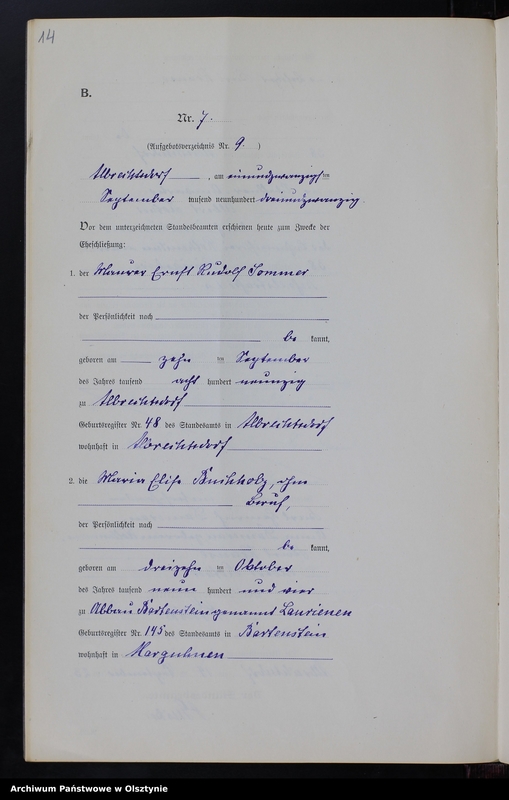 14
B.
Nr. 7.
(Aufgebotsverzeichnis Nr. 9. )
Albrechtsdorf, am einundzwanzigsten
September tausend neunhundert dreiundzwanzig.
Vor dem unterzeichneten Standesbeamten erschienen heute zum Zwecke der
Eheschließung:
1. der Maurer Ernst Rudolf Sommer
der Persönlichkeit nach
be kannt,
geboren am zehn ten September
des Jahres tausend acht hundert neunzig
zu Albrechtsdorf
Geburtsregister Nr. 48 des Standesamts in Albrechtsdorf
wohnhaft in Albrechtsdorf
2. die Maria Elise Buchholz, ohne
Beruf,
der Persönlichkeit nach
be kannt,
geboren am dreizehn ten Oktober
des Jahres tausend neun hundert und vier
zu Abbau Bartenstein genannt Laurienen
Geburtsregister Nr. 145 des Standesamts in Bartenstein
wohnhaft in Marguhnen
Archiwum Państwowe w Olsztynie